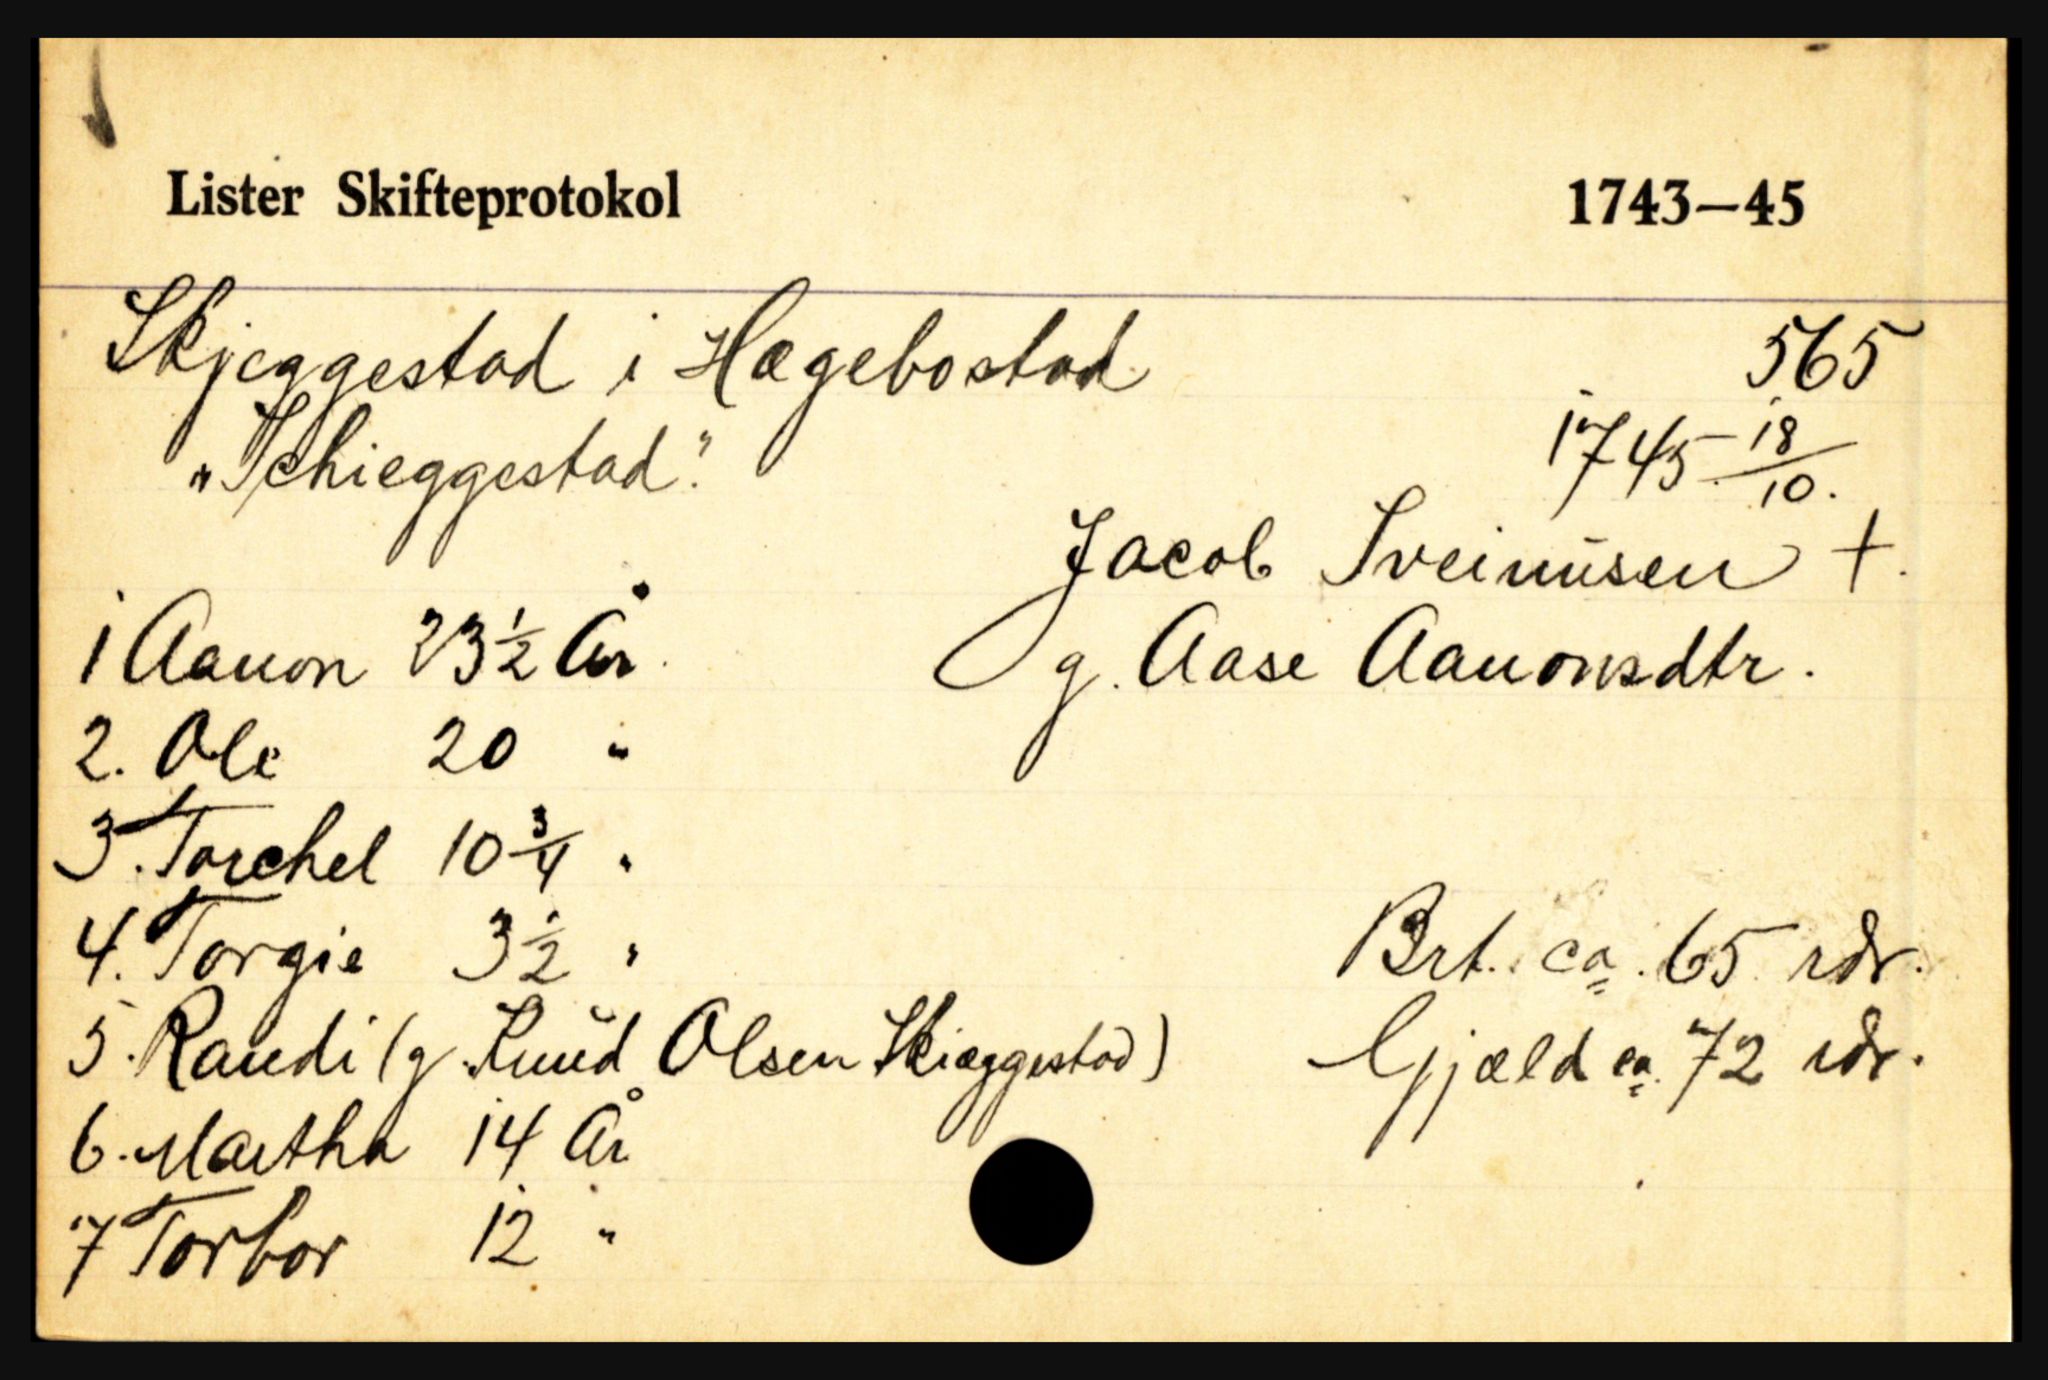 Lister Skifteprotokol 1743—45
Skjeggestad i Hægebostad 565
"Schieggestad". 1745 18/10.
Jacob Sveinusen +.
g. Aase Aanonsdtr.
1 Aanon 23 1/2 År.
2. Ole 20 "
3. Torchel 10 3/4 "
4. Torgie 3 1/2 "
Brt. ca. 65 rdr.
5. Randi (g. Knud Olsen Skiæggestad)
Gjæld ca. 72 rdr.
6. Martha 14 År
7 Torbor 12 "